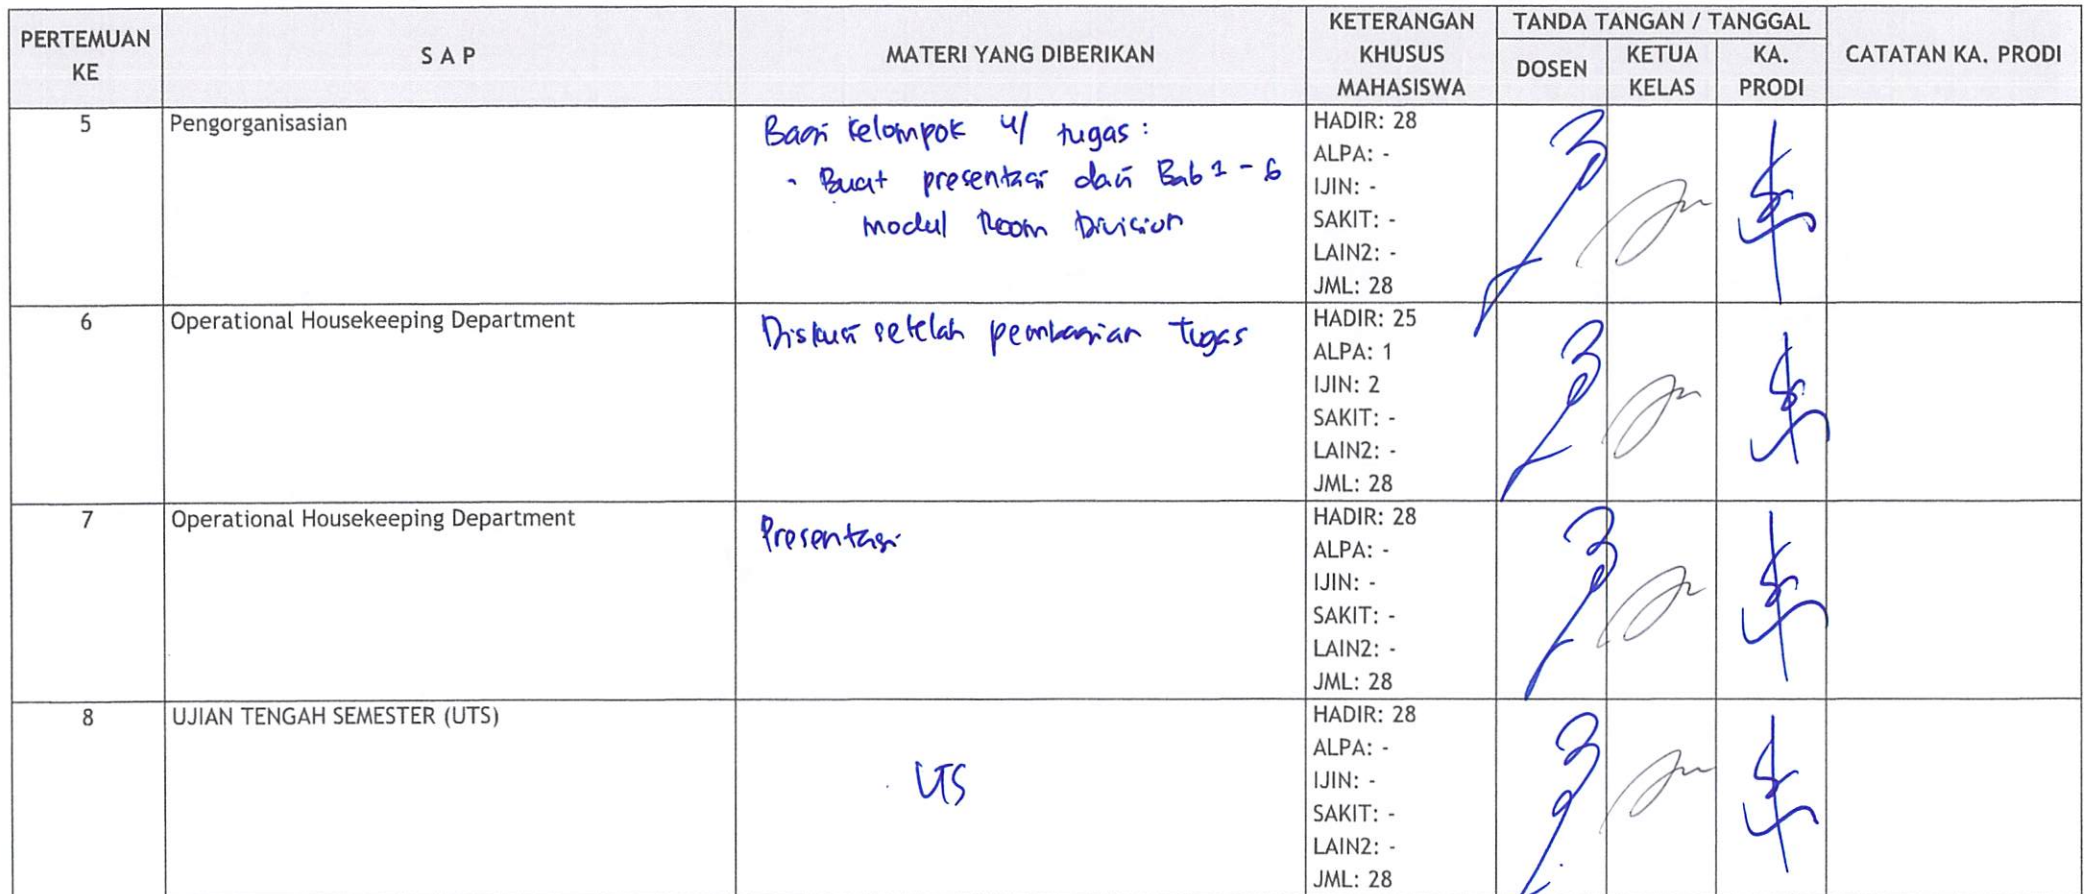 PERTEMUAN KE
S A P
MATERI YANG DIBERIKAN
KETERANGAN KHUSUS MAHASISWA
TANDA TANGAN / TANGGAL
DOSEN
KETUA KELAS
KA. PRODI
CATATAN KA. PRODI
5
Pengorganisasian
Bagi kelompok u/ tugas :
- Buat presentasi dari Bab 1 - 6
modul Room Division
HADIR: 28
ALPA: -
IJIN: -
SAKIT: -
LAIN2: -
JML: 28
6
Operational Housekeeping Department
Diskusi setelah pembagian tugas
HADIR: 25
ALPA: 1
IJIN: 2
SAKIT: -
LAIN2: -
JML: 28
7
Operational Housekeeping Department
Presentasi
HADIR: 28
ALPA: -
IJIN: -
SAKIT: -
LAIN2: -
JML: 28
8
UJIAN TENGAH SEMESTER (UTS)
UTS
HADIR: 28
ALPA: -
IJIN: -
SAKIT: -
LAIN2: -
JML: 28